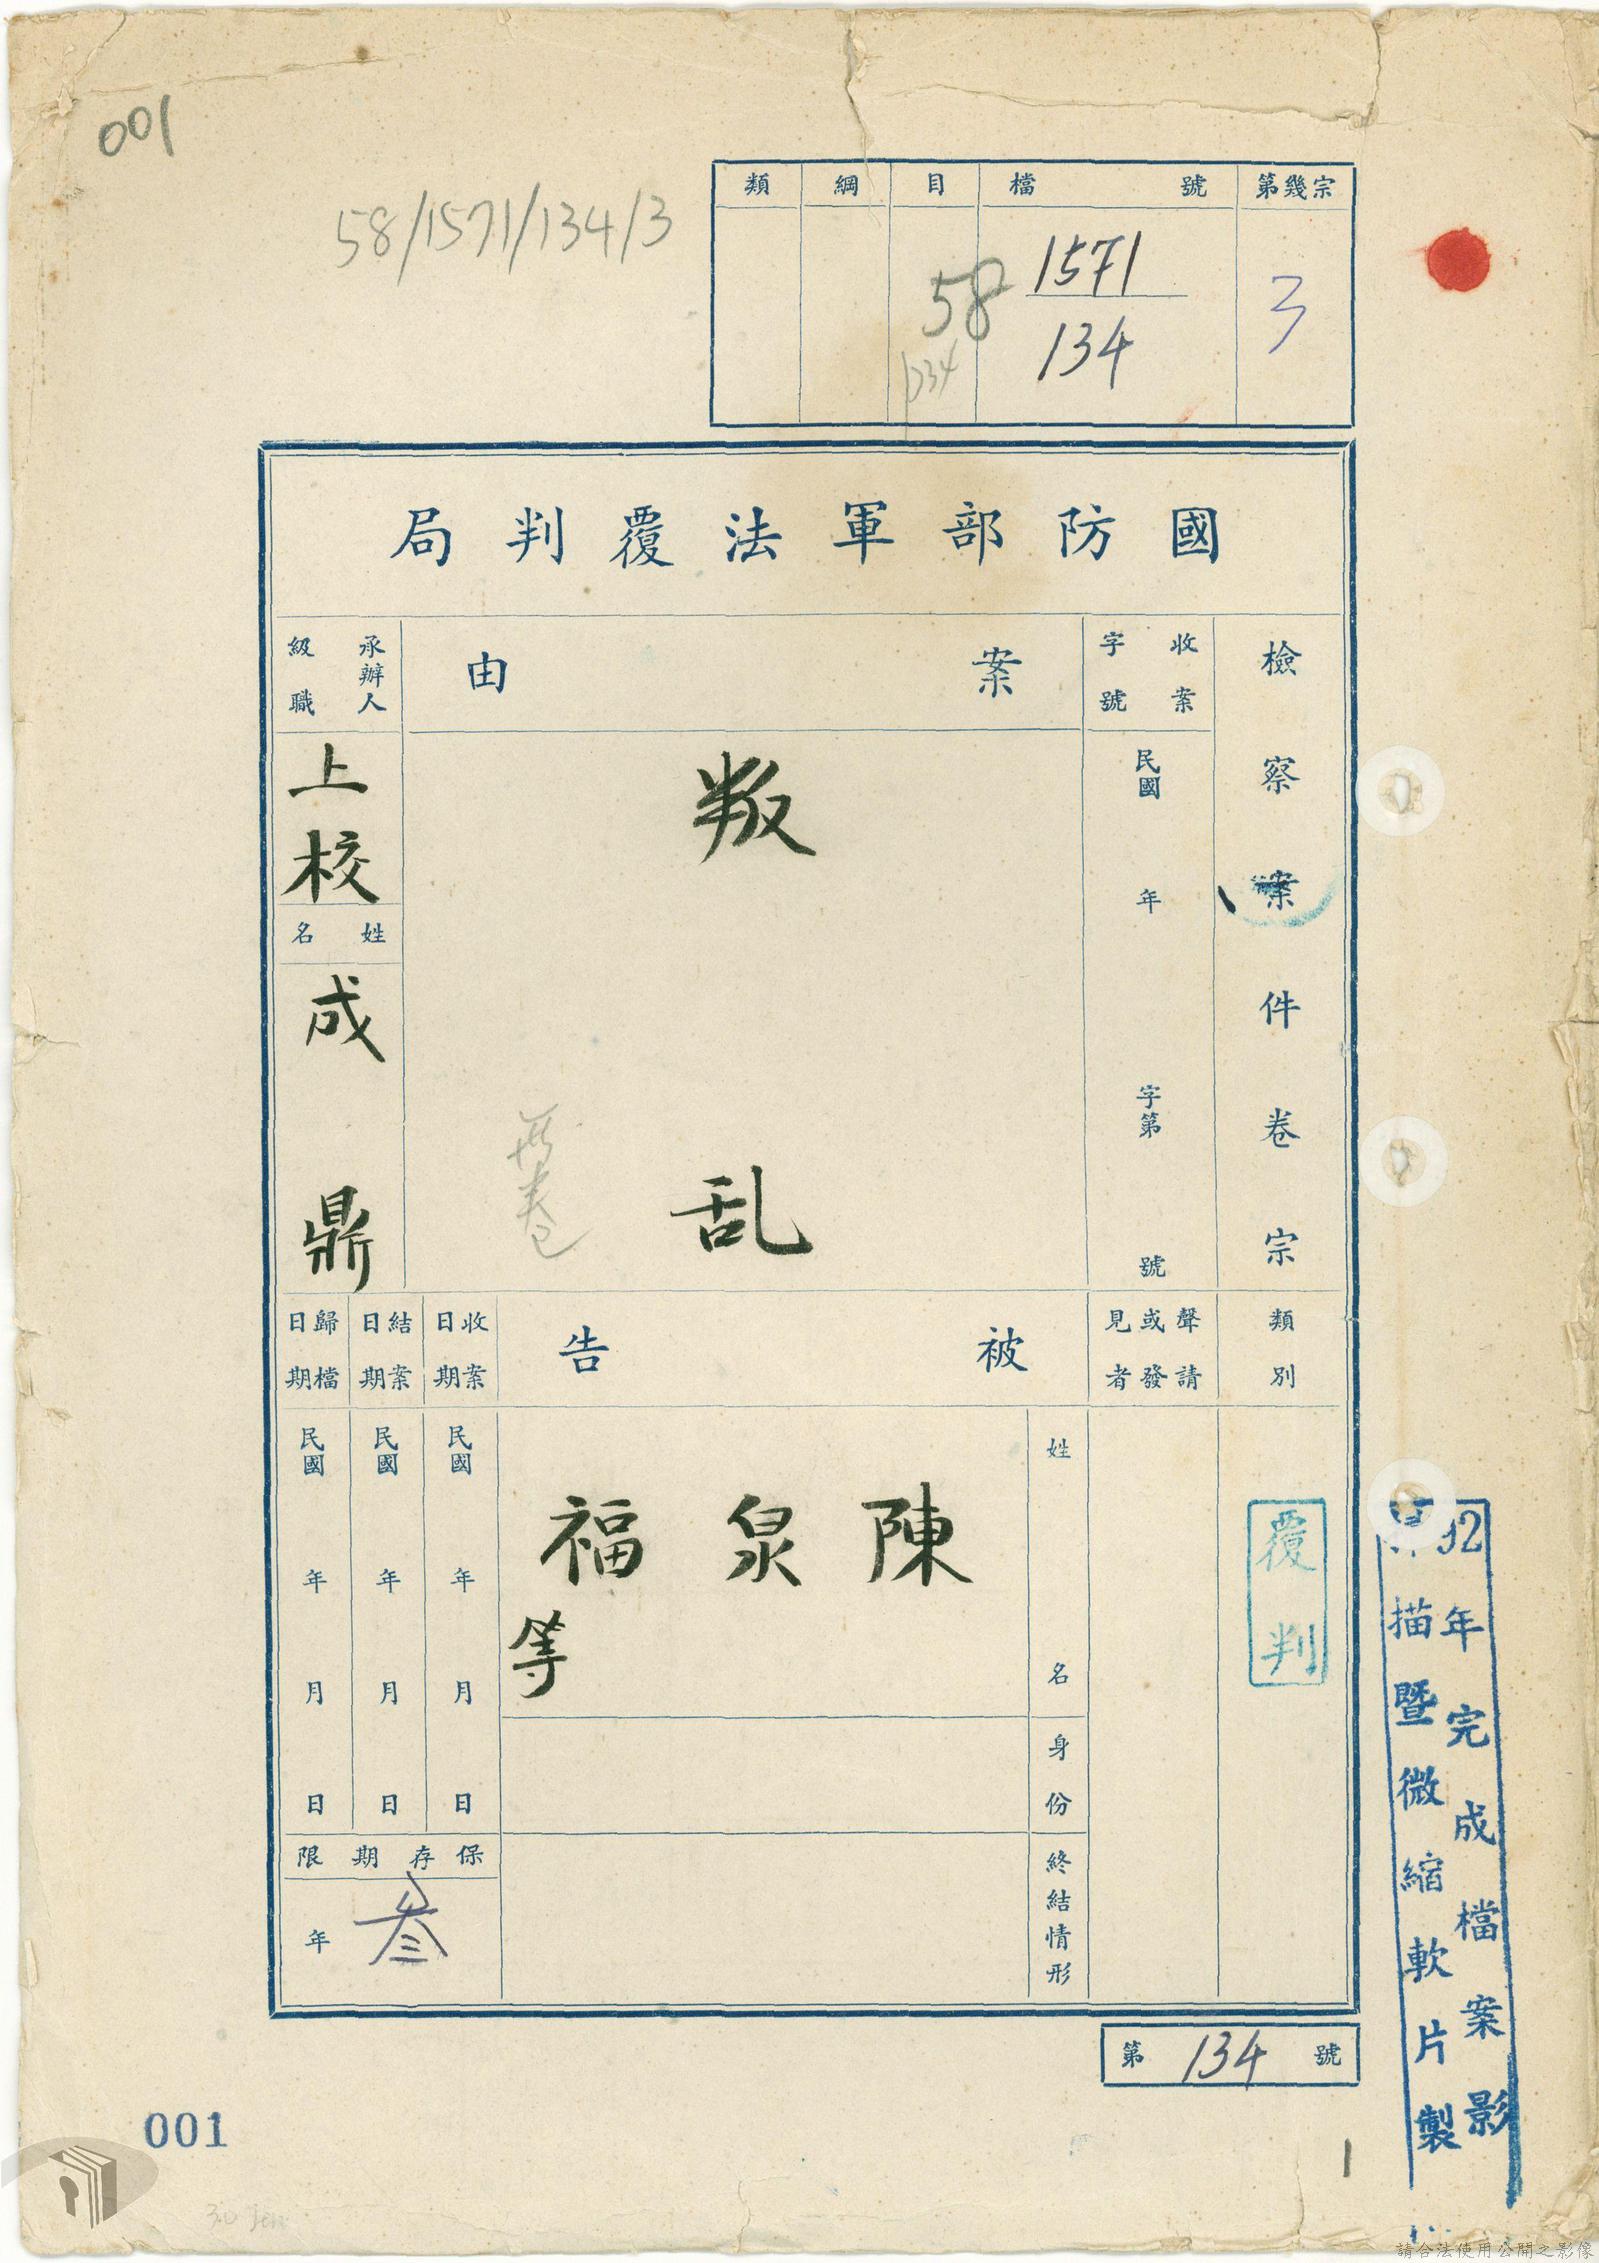 001
58/1571/134/3
類 綱 目 檔號 第幾宗
58 1571 3
134 134
國防部軍法覆判局
檢察案件卷宗
收案字號
民國 年 字第 號
案由
叛乱
承辦人級職
上校
姓名
成鼎
類別
覆判
聲請或發見者
被告
姓名
陳泉福
等
身份
終結情形
收案日期
民國 年 月 日
結案日期
民國 年 月 日
歸檔日期
民國 年 月 日
保存期限
叁年
第134號
92年完成檔案影
描暨微縮軟片製
001
請合法使用公開之影像